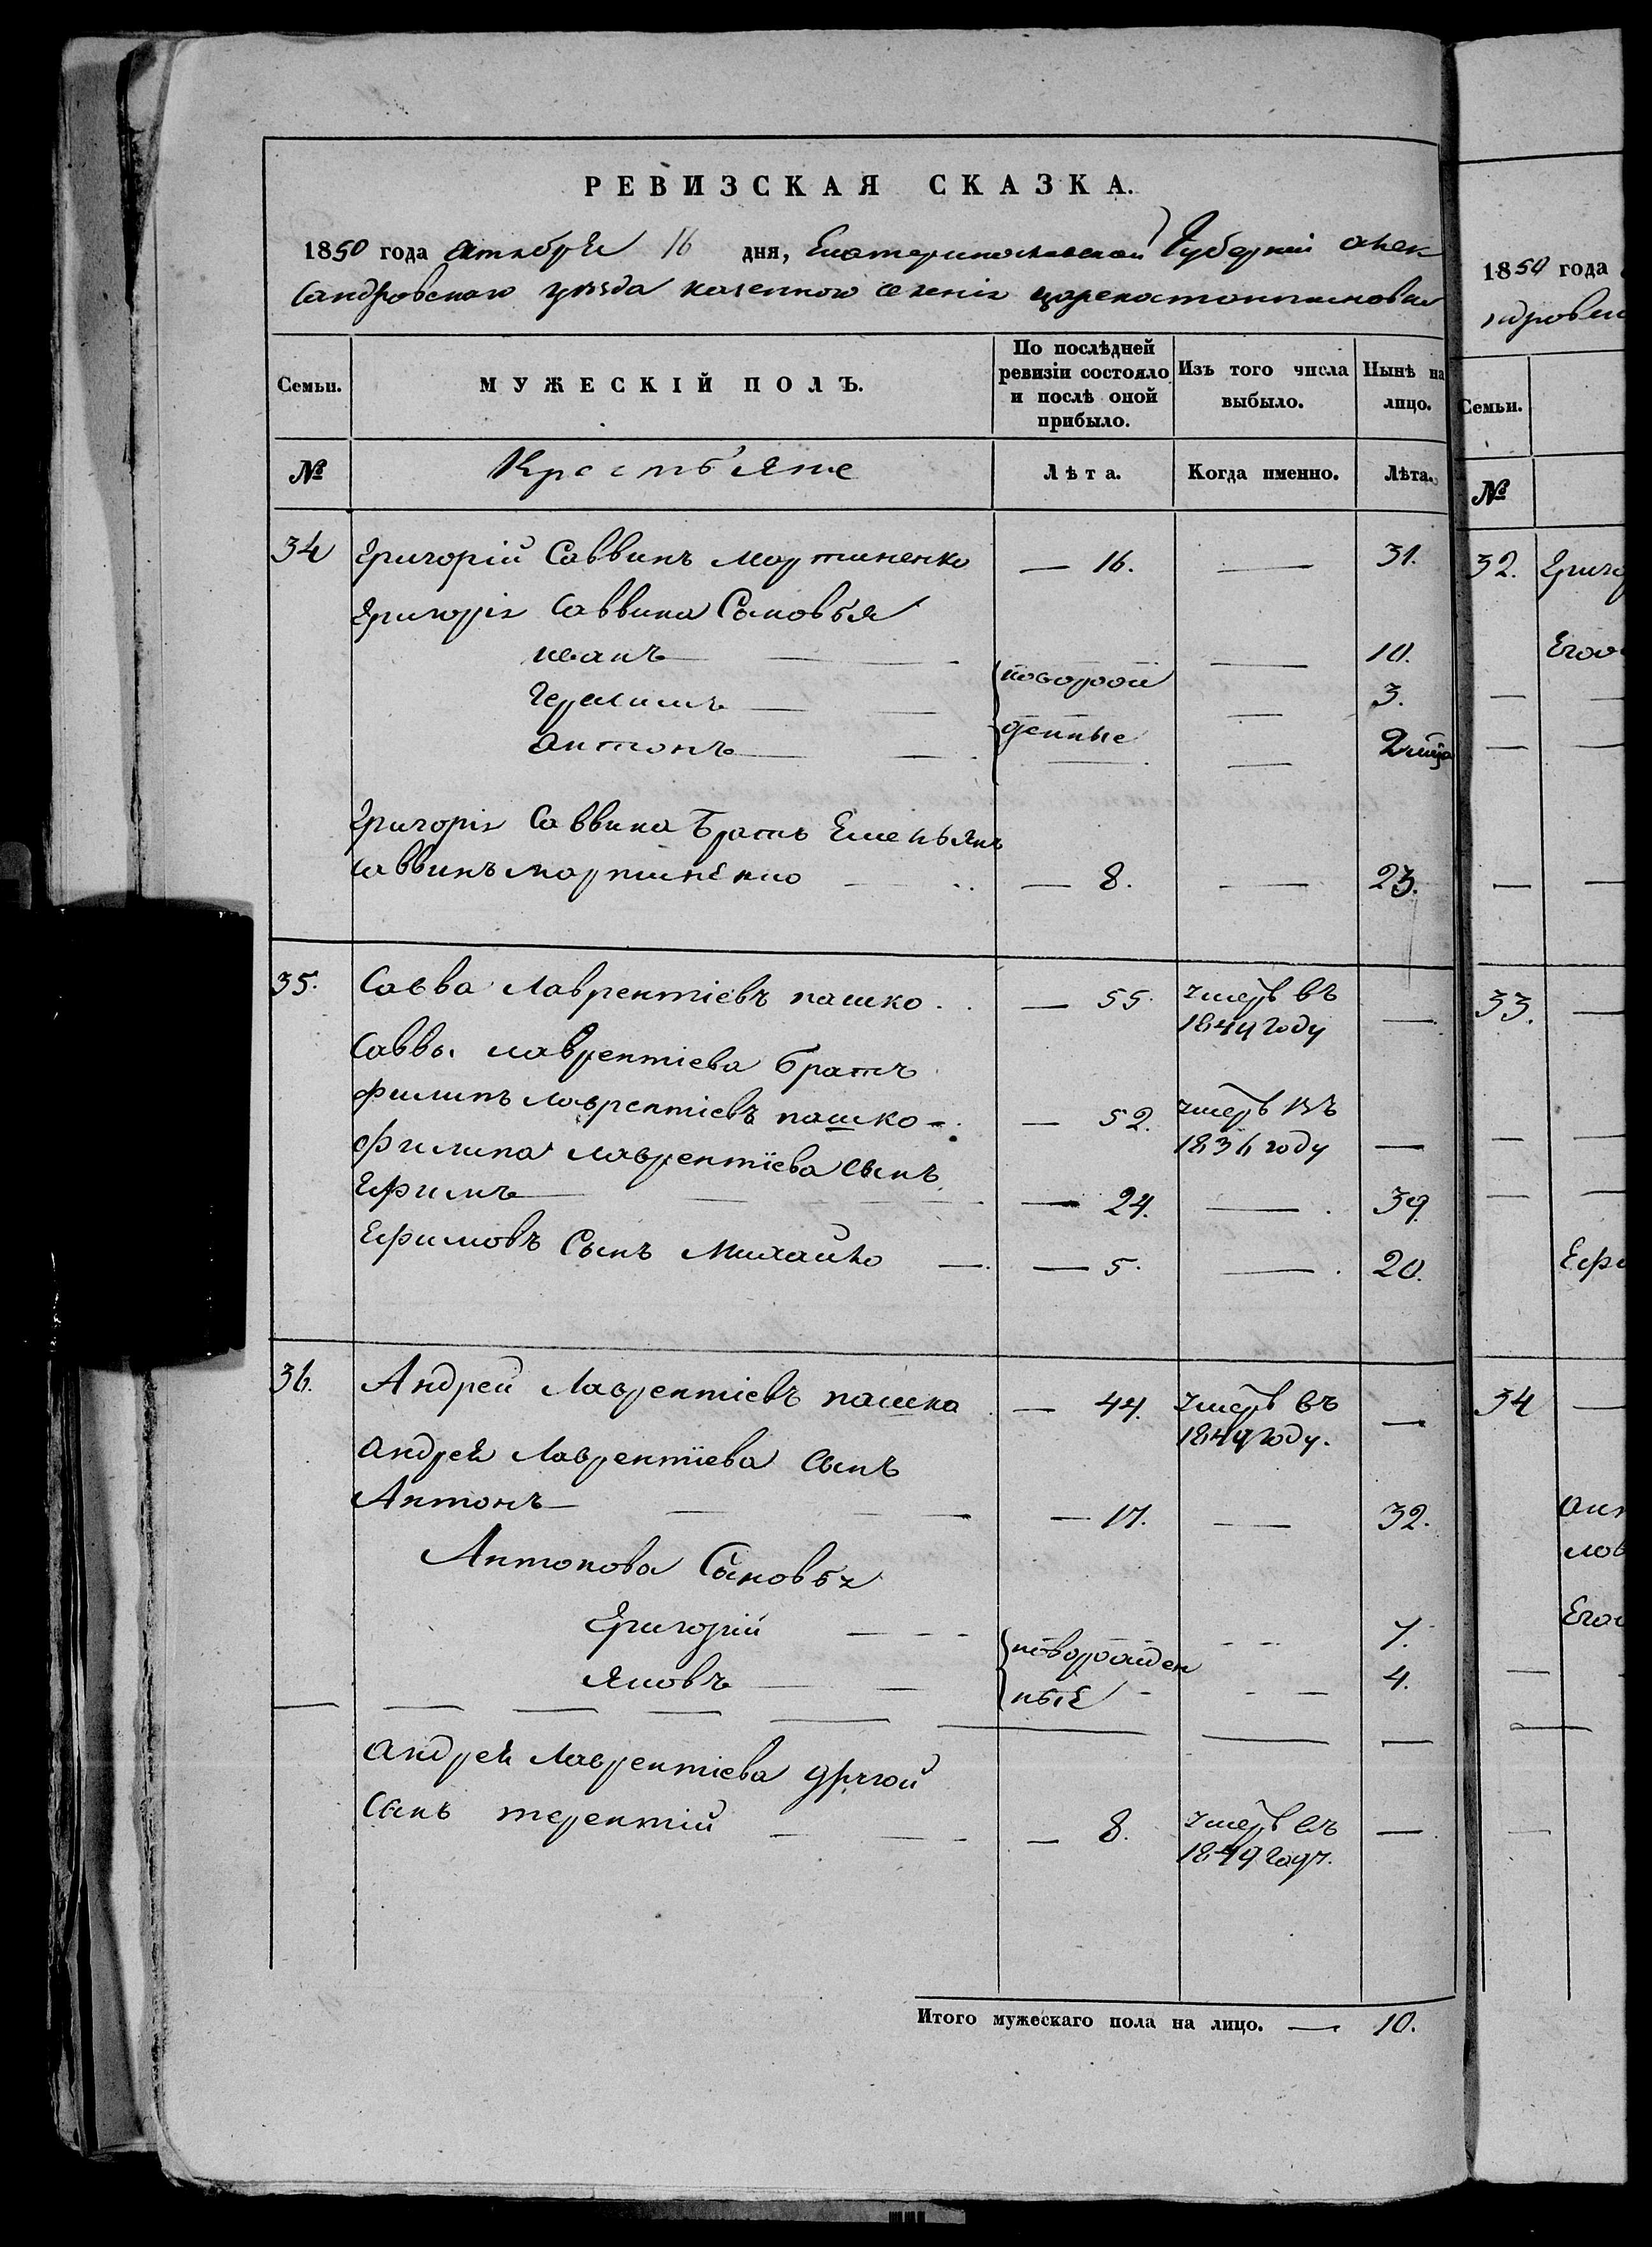 РЕВИЗСКАЯ СКАЗКА.
1850 года октября 16 дня, Екатеринославской Губерніи Алек
сандровскаго уѣзда казеннаго селенія Цареконстантиновки
Семьи. МУЖЕСКІЙ ПОЛЪ. По послѣдней ревизіи состояло и послѣ оной прибыло. Изъ того числа выбыло. Нынѣ на лицо.
№ Крестьяне Лѣта. Когда именно. Лѣта.
34 Григорій Саввинъ Мартиненко — 16. — 31.
Григорія Саввина Сыновья
Иванъ — — — 10.
Герасимъ — — новорож — 3.
Антонъ — — денные — 2 мѣся
Григорія Саввина Братъ Емельянъ
Саввинъ Мартиненко — — 8. — 23.
35. Савва Лаврентіевъ пашко — 55. умеръ въ
1849 году —
Саввы Лаврентіева братъ
Филипъ Лаврентіевъ пашко — — 52. умеръ въ
1836 году —
Филипа Лаврентіева сынъ
Ефимъ — — — — 24. — 39.
Ефимовъ Сынъ Михайло — — 5. — 20.
36. Андрей Лаврентіевъ пашка — 44. умеръ въ —
1849 году.
Андрея Лаврентіева сынъ
Антонъ — — — — — 17. — 32.
Антонова Сыновья
Григорій — — — новорожден — — 7.
Яковъ — — ные — — — 4.
Андрея Лаврентіева другой
сынъ терентій — — — — 8. умеръ въ —
1849 году.
Итого мужескаго пола на лицо. — 10.
1850 года
ндровск
Семьи.
№
32. Григо
Его
33.
Ефи
34
Ант
лов
Его